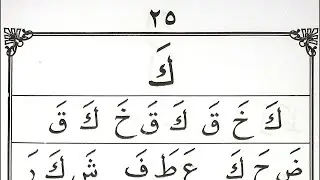 ٢٥
كَ
كَ خَ قَ كَ قَ خَ كَ قَ
ضَ حَ كَ عَ طَ فَ شَ كَ رَ